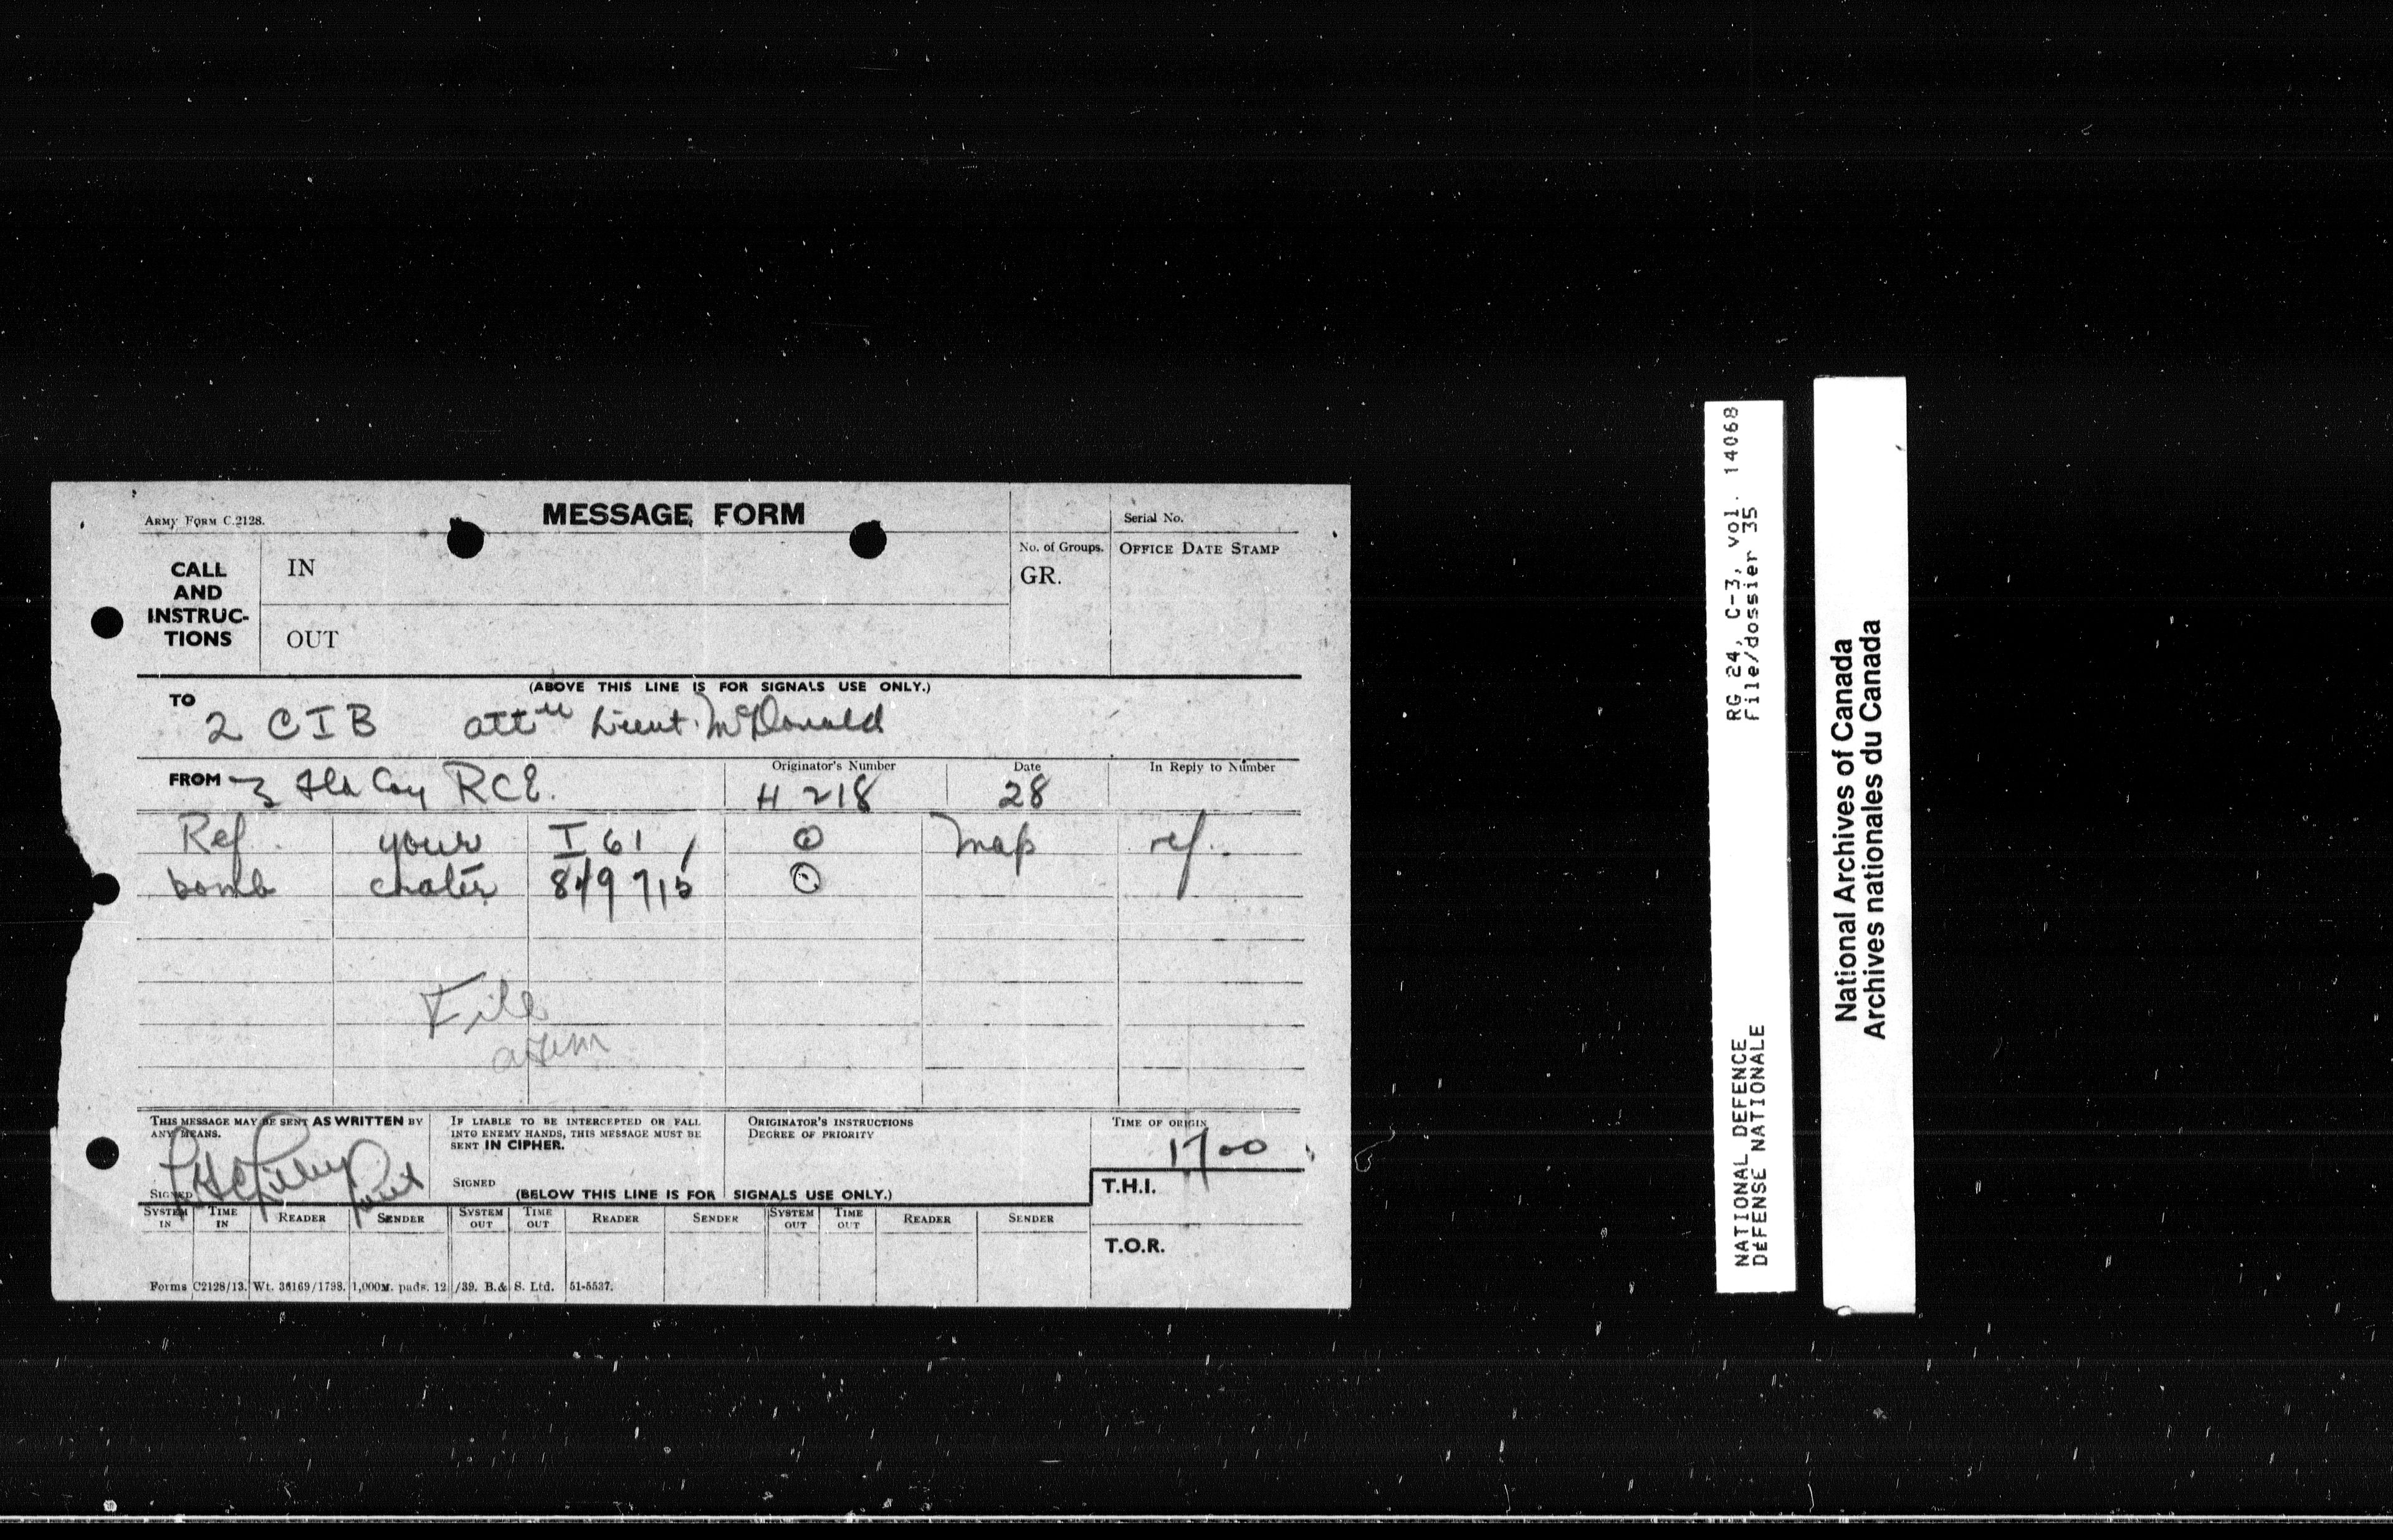 ARMY FORM C.2128.
MESSAGE FORM
Serial No.
CALL AND INSTRUC-TIONS
IN
OUT
No. of Groups.
GR.
OFFICE DATE STAMP
(ABOVE THIS LINE IS FOR SIGNALS USE ONLY.)
TO 2 CIB attn Lieut. McDonald
FROM 3 Fld Coy RCE.
Originator's Number H 218
Date 28
In Reply to Number
Ref. your I 61 ⊙ Map ref.
bomb crater 849715 ⊙
File
THIS MESSAGE MAY BE SENT AS WRITTEN BY ANY MEANS.
SIGNED
IF LIABLE TO BE INTERCEPTED OR FALL INTO ENEMY HANDS, THIS MESSAGE MUST BE SENT IN CIPHER.
SIGNED
ORIGINATOR'S INSTRUCTIONS
DEGREE OF PRIORITY
TIME OF ORIGIN
1700
T.H.I.
(BELOW THIS LINE IS FOR SIGNALS USE ONLY.)
SYSTEM IN TIME IN READER SENDER SYSTEM OUT TIME OUT READER SENDER SYSTEM OUT TIME OUT READER SENDER
T.O.R.
Forms C2128/13. Wt. 36169/1798. 1,000M. pads. 12/39. B.& S. Ltd. 51-5537.
RG 24, C-3, vol. 14068
File/dossier 35
NATIONAL DEFENCE
DÉFENSE NATIONALE
National Archives of Canada
Archives nationales du Canada